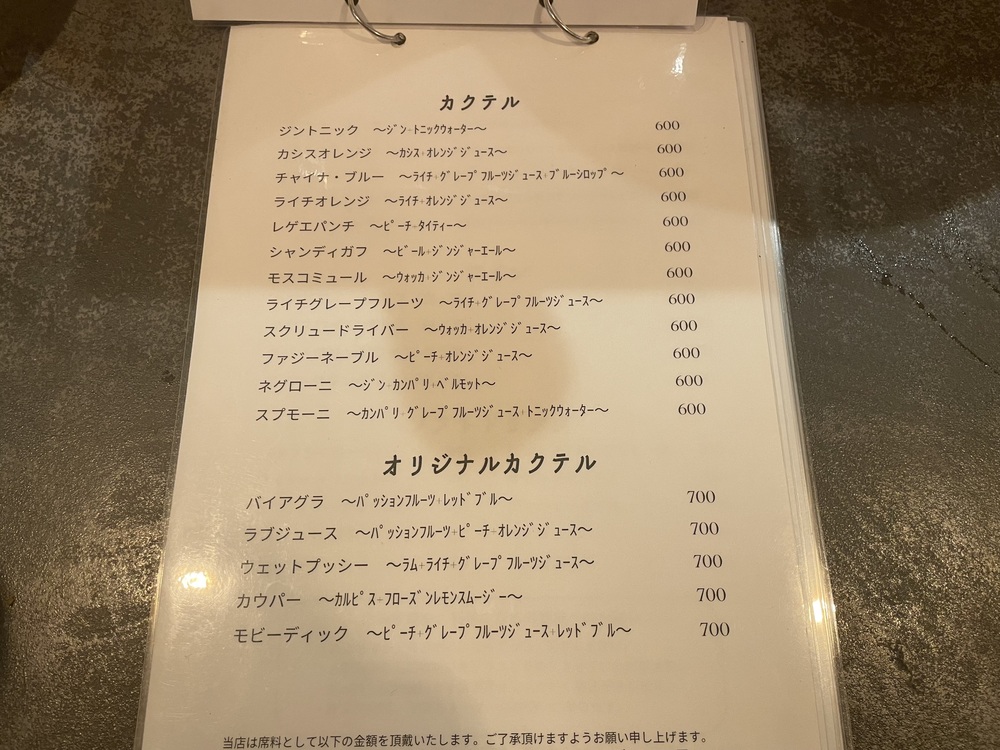 カクテル
ジントニック ～ｼﾞﾝ+ﾄﾆｯｸｳｫｰﾀｰ～ 600
カシスオレンジ ～ｶｼｽ+ｵﾚﾝｼﾞｼﾞｭｰｽ～ 600
チャイナ・ブルー ～ﾗｲﾁ+ｸﾞﾚｰﾌﾟﾌﾙｰﾂｼﾞｭｰｽ+ﾌﾞﾙｰｼﾛｯﾌﾟ～ 600
ライチオレンジ ～ﾗｲﾁ+ｵﾚﾝｼﾞｼﾞｭｰｽ～ 600
レゲエパンチ ～ﾋﾟｰﾁ+ﾀｲﾃｨｰ～ 600
シャンディガフ ～ﾋﾞｰﾙ+ｼﾞﾝｼﾞｬｰｴｰﾙ～ 600
モスコミュール ～ｳｫｯｶ+ｼﾞﾝｼﾞｬｰｴｰﾙ～ 600
ライチグレープフルーツ ～ﾗｲﾁ+ｸﾞﾚｰﾌﾟﾌﾙｰﾂｼﾞｭｰｽ～ 600
スクリュードライバー ～ｳｫｯｶ+ｵﾚﾝｼﾞｼﾞｭｰｽ～ 600
ファジーネーブル ～ﾋﾟｰﾁ+ｵﾚﾝｼﾞｼﾞｭｰｽ～ 600
ネグローニ ～ｼﾞﾝ+ｶﾝﾊﾟﾘ+ﾍﾞﾙﾓｯﾄ～ 600
スプモーニ ～ｶﾝﾊﾟﾘ+ｸﾞﾚｰﾌﾟﾌﾙｰﾂｼﾞｭｰｽ+ﾄﾆｯｸｳｫｰﾀｰ～ 600
オリジナルカクテル
バイアグラ ～ﾊﾟｯｼｮﾝﾌﾙｰﾂ+ﾚｯﾄﾞﾌﾞﾙ～ 700
ラブジュース ～ﾊﾟｯｼｮﾝﾌﾙｰﾂ+ﾋﾟｰﾁ+ｵﾚﾝｼﾞｼﾞｭｰｽ～ 700
ウェットプッシー ～ﾗﾑ+ﾗｲﾁ+ｸﾞﾚｰﾌﾟﾌﾙｰﾂｼﾞｭｰｽ～ 700
カウパー ～ｶﾙﾋﾟｽ+ﾌﾛｰｽﾞﾝﾚﾓﾝｽﾑｰｼﾞｰ～ 700
モビーディック ～ﾋﾟｰﾁ+ｸﾞﾚｰﾌﾟﾌﾙｰﾂｼﾞｭｰｽ+ﾚｯﾄﾞﾌﾞﾙ～ 700
当店は席料として以下の金額を頂戴いたします。ご了承頂けますようお願い申し上げます。